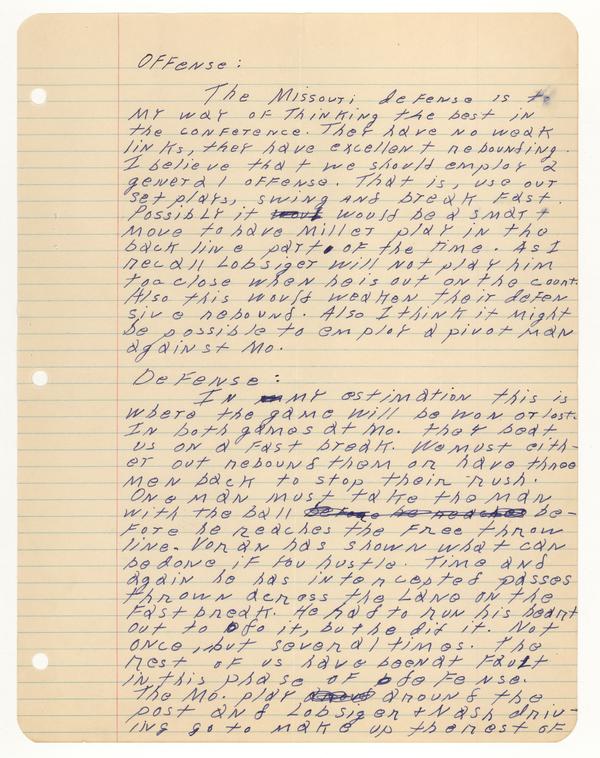 OFFense:
The Missouri defense is to
my way of Thinking the best in
the conference. They have no weak
links, they have excellent rebounding.
I believe that we should employ a
general offense. That is, use our
set plays, swing and break fast.
Possibly it would be a smart
move to have Miller play in the
back line part of the time. As I
recall Lobsiger will not play him
too close when he is out on the court.
Also this would weaken their defen
sive rebound. Also I think it might
be possible to employ a pivot man
against Mo.
Defense:
In my estimation this is
where the game will be won or lost.
In both games at Mo. they beat
us on a fast break. We must eith-
er out rebound them or have three
men back to stop their rush.
One man must take the man
with the ball before he reaches be-
fore he reaches the free throw
line. Voran has shown what can
be done if you hustle. Time and
again he has intercepted passes
thrown across the lane on the
fast break. He had to run his heart
out to do it, but he did it. Not
once, but several times. The
rest of us have been at fault
in this phase of defense.
The Mo. play around the
post and Lobsiger & Nash driv-
ing go to make up the rest of